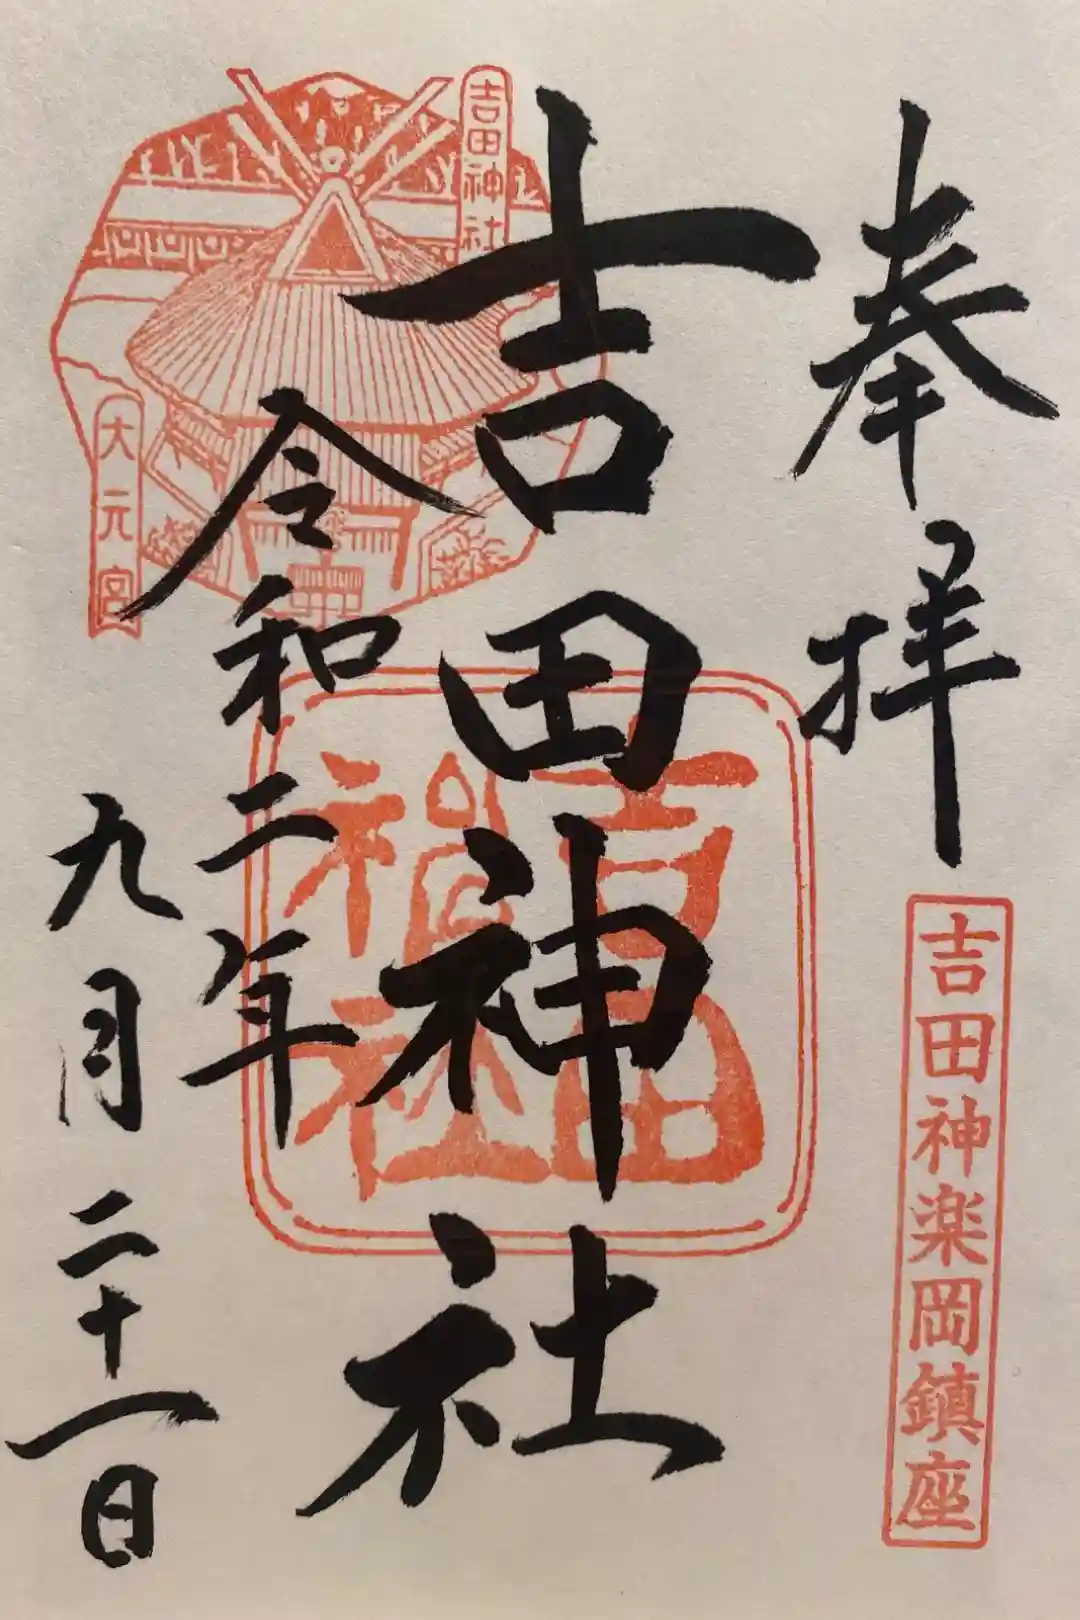 奉拝
吉田神楽岡鎮座
吉田神社
吉田神社
吉田
神社
令和二年
九月二十一日
大元宮